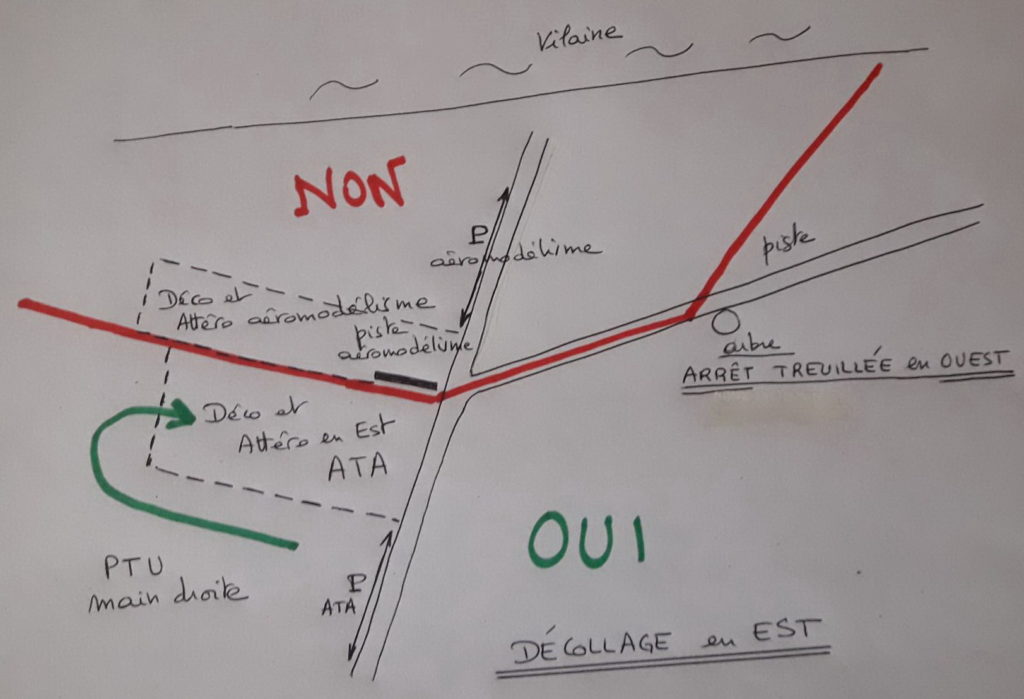 Vilaine
NON
P
aéromodélisme
piste
Déco et
Attéro aéromodélisme
piste
aéromodélisme
arbre
ARRÊT TREUILLÉE en OUEST
Déco et
Attéro en Est
ATA
OUI
PTU
main droite
P
ATA
DÉCOLLAGE en EST